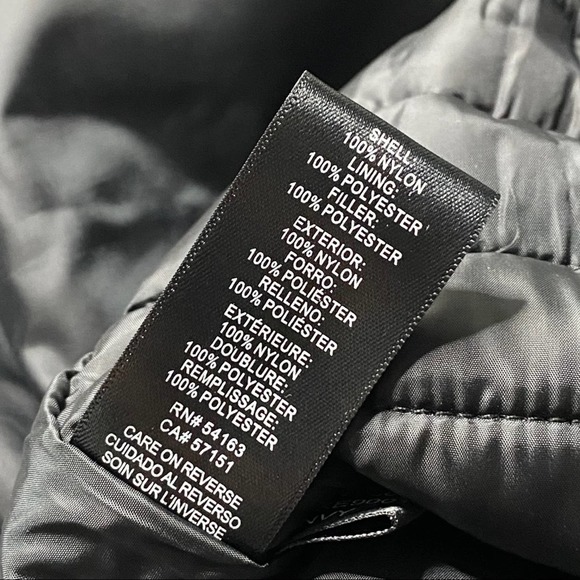 SHELL:
100% NYLON
LINING:
100% POLYESTER
FILLER:
100% POLYESTER
EXTERIOR:
100% NYLON
FORRO:
100% POLIÉSTER
RELLENO:
100% POLIÉSTER
EXTÉRIEURE:
100% NYLON
DOUBLURE:
100% POLYESTER
REMPLISSAGE:
100% POLYESTER
RN# 54163
CA# 57151
CARE ON REVERSE
CUIDADO AL REVERSO
SOIN SUR L'INVERSE